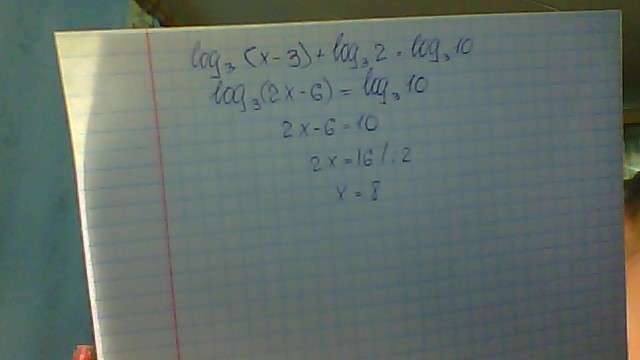 log₃ (x-3) + log₃ 2 = log₃ 10
log₃ (2x-6) = log₃ 10
2x-6=10
2x=16 /:2
x = 8